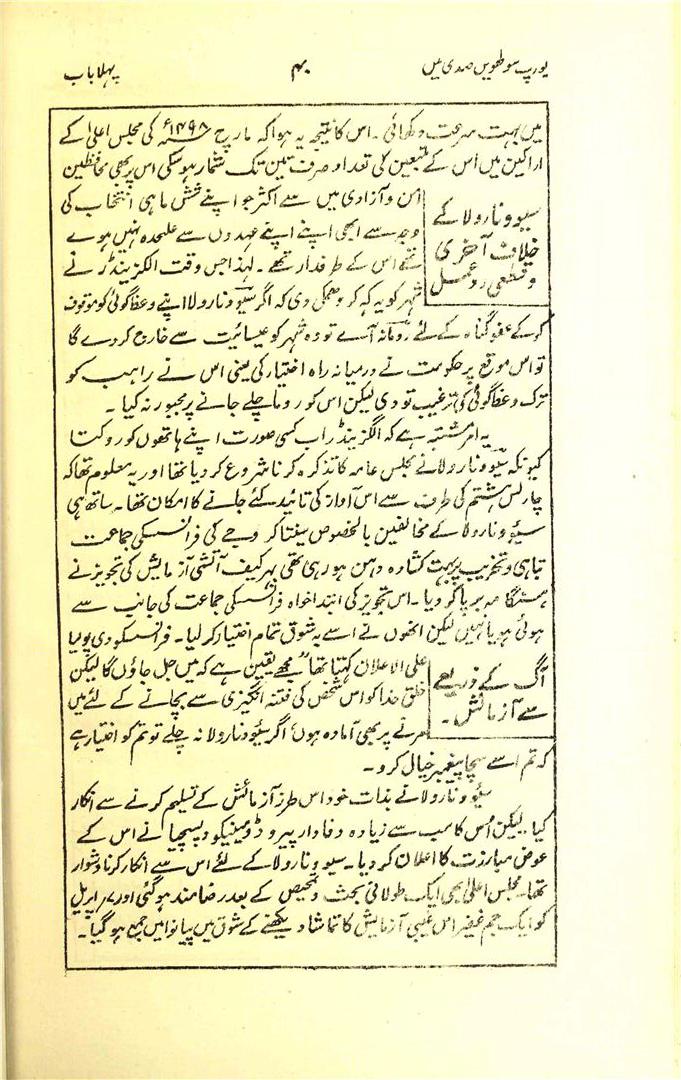 یورپ سولھویں صدی میں
۴۰
پہلا باب
میں بہت سرعت دکھائی۔ اس کا نتیجہ یہ ہوا کہ مارچ ۱۴۹۸ء کی مجلس اعلیٰ کے
اراکین میں اس کے متبعین کی تعداد صرف تین تک شمار ہوسکی اس پر بھی محافظین
امن و آزادی میں سے اکثر جو اپنے شش ماہی انتخاب کی
وجہ سے ابھی اپنے اپنے عہدوں سے علیحدہ نہیں ہوے
تھے اس کے طرفدار تھے۔ لہذا جس وقت الکزینڈر نے
شہر کو یہ کہہ کر دھمکی دی کہ اگر سیوونارولا اپنے وعظ گوئی کو موقوف
سیوونارولا کے
خلاف آخری
وقطعی ردعمل
کرکے عفو گناہ کے لئے رومانہ آے تو وہ شہر کو عیسائیت سے خارج کردے گا
تو اس موقع پر حکومت نے درمیانہ راہ اختیار کی یعنی اس نے راہب کو
ترک وعظ گوئی کی ترغیب تو دی لیکن اس کو روما چلے جانے پر مجبور نہ کیا۔
یہ امر مشتبہ ہے کہ الگزینڈر اب کسی صورت اپنے ہاتھوں کو روکتا
کیونکہ سیوونارولا نے مجلس عامہ کا تذکرہ کرنا شروع کردیا تھا اور یہ معلوم تھا کہ
چارلس ہشتم کی طرف سے اس آواز کی تائید کئے جانے کا امکان تھا۔ ساتھ ہی
سیوونارولا کے مخالفین بالخصوص سینٹا کروچے کی فرانسسکی جماعت
تباہی و تخریب پر بہت کشادہ دہن ہورہی تھی بہر کیف آتشی آزمایش کی تجویز نے
ہنگامہ برپا کردیا۔ اس تجویز کی ابتدا خواہ فرانسسکی جماعت کی جانب سے
ہوئی ہو یا نہیں لیکن انھوں نے اسے بہ شوق تمام اختیار کرلیا۔ فرانسسکو دی پولیا
علی الاعلان کہتا تھا "مجھے یقین ہے کہ میں جل جاؤں گا لیکن
خلق خدا کو اس شخص کی فتنہ انگیزی سے بچانے کے لئے میں
مرنے پر بھی آمادہ ہوں، اگر سیوونارولا نہ جلے تو تم کو اختیار ہے
آگ کے ذریعے
سے آزمائش۔
کہ تم اسے سچا پیغمبر خیال کرو۔
سیوونارولا نے بذات خود اس طرز آزمائش کے تسلیم کرنے سے انکار
کیا۔ لیکن اُس کا سب سے زیادہ وفادار پیرو ڈومینیکو دپسچیا نے اس کے
عوض مبارزت کا اعلان کردیا۔ سیوونارولا کے لئے اس سے انکار کرنا دشوار
تھا۔ مجلس اعلیٰ بھی ایک طولانی بحث و تمحیص کے بعد رضامند ہوگئی اور ۷؍ اپریل
کو ایک جم غفیر اس غیبی آزمایش کا تماشا دیکھنے کے شوق میں پیانوا میں جمع ہوگیا۔